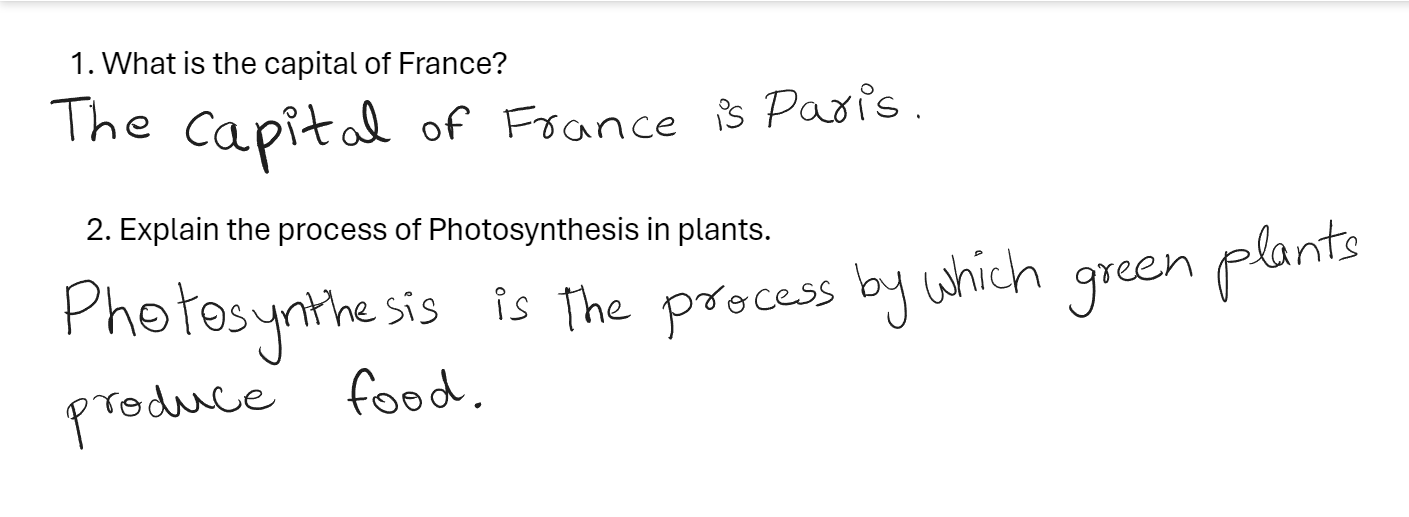 1. What is the capital of France?
The capital of France is Paris.
2. Explain the process of Photosynthesis in plants.
Photosynthesis is The process by which green plants
produce food.